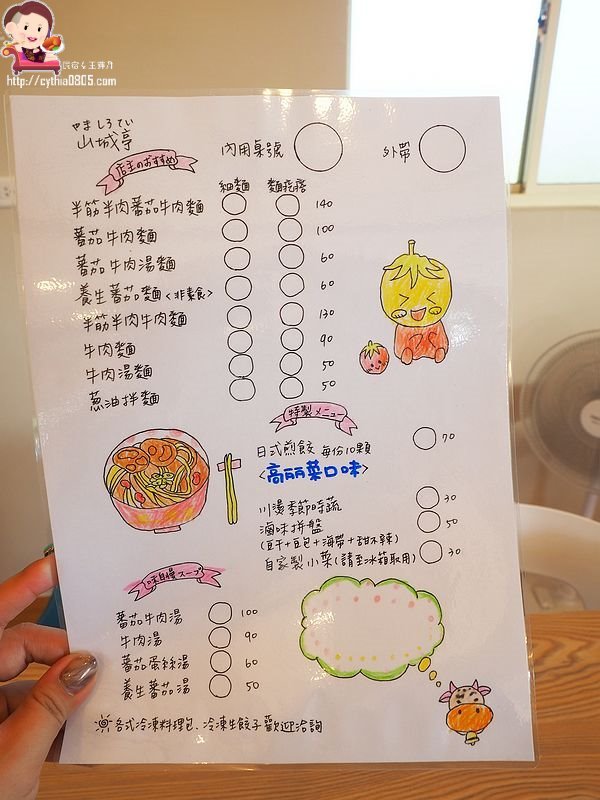 民宿女王芽月
http://cythia0805.com
やましろてい
山城亭
內用桌號 外帶
店主のおすすめ
細麵 麵疙瘩
半筋半肉蕃茄牛肉麵 140
蕃茄牛肉麵 100
蕃茄牛肉湯麵 60
養生蕃茄麵<非素食> 60
半筋半肉牛肉麵 130
牛肉麵 90
牛肉湯麵 50
蔥油拌麵 50
特製メニュー
日式煎餃 每份10顆 70
<高丽菜口味>
川燙季節時蔬 30
滷味拼盤 50
(豆干+豆包+海帶+甜不辣)
自家製小菜(請至冰箱取用) 30
味自慢スープ
蕃茄牛肉湯 100
牛肉湯 90
蕃茄蛋絲湯 60
養生蕃茄湯 50
各式冷凍料理包、冷凍生餃子歡迎洽詢